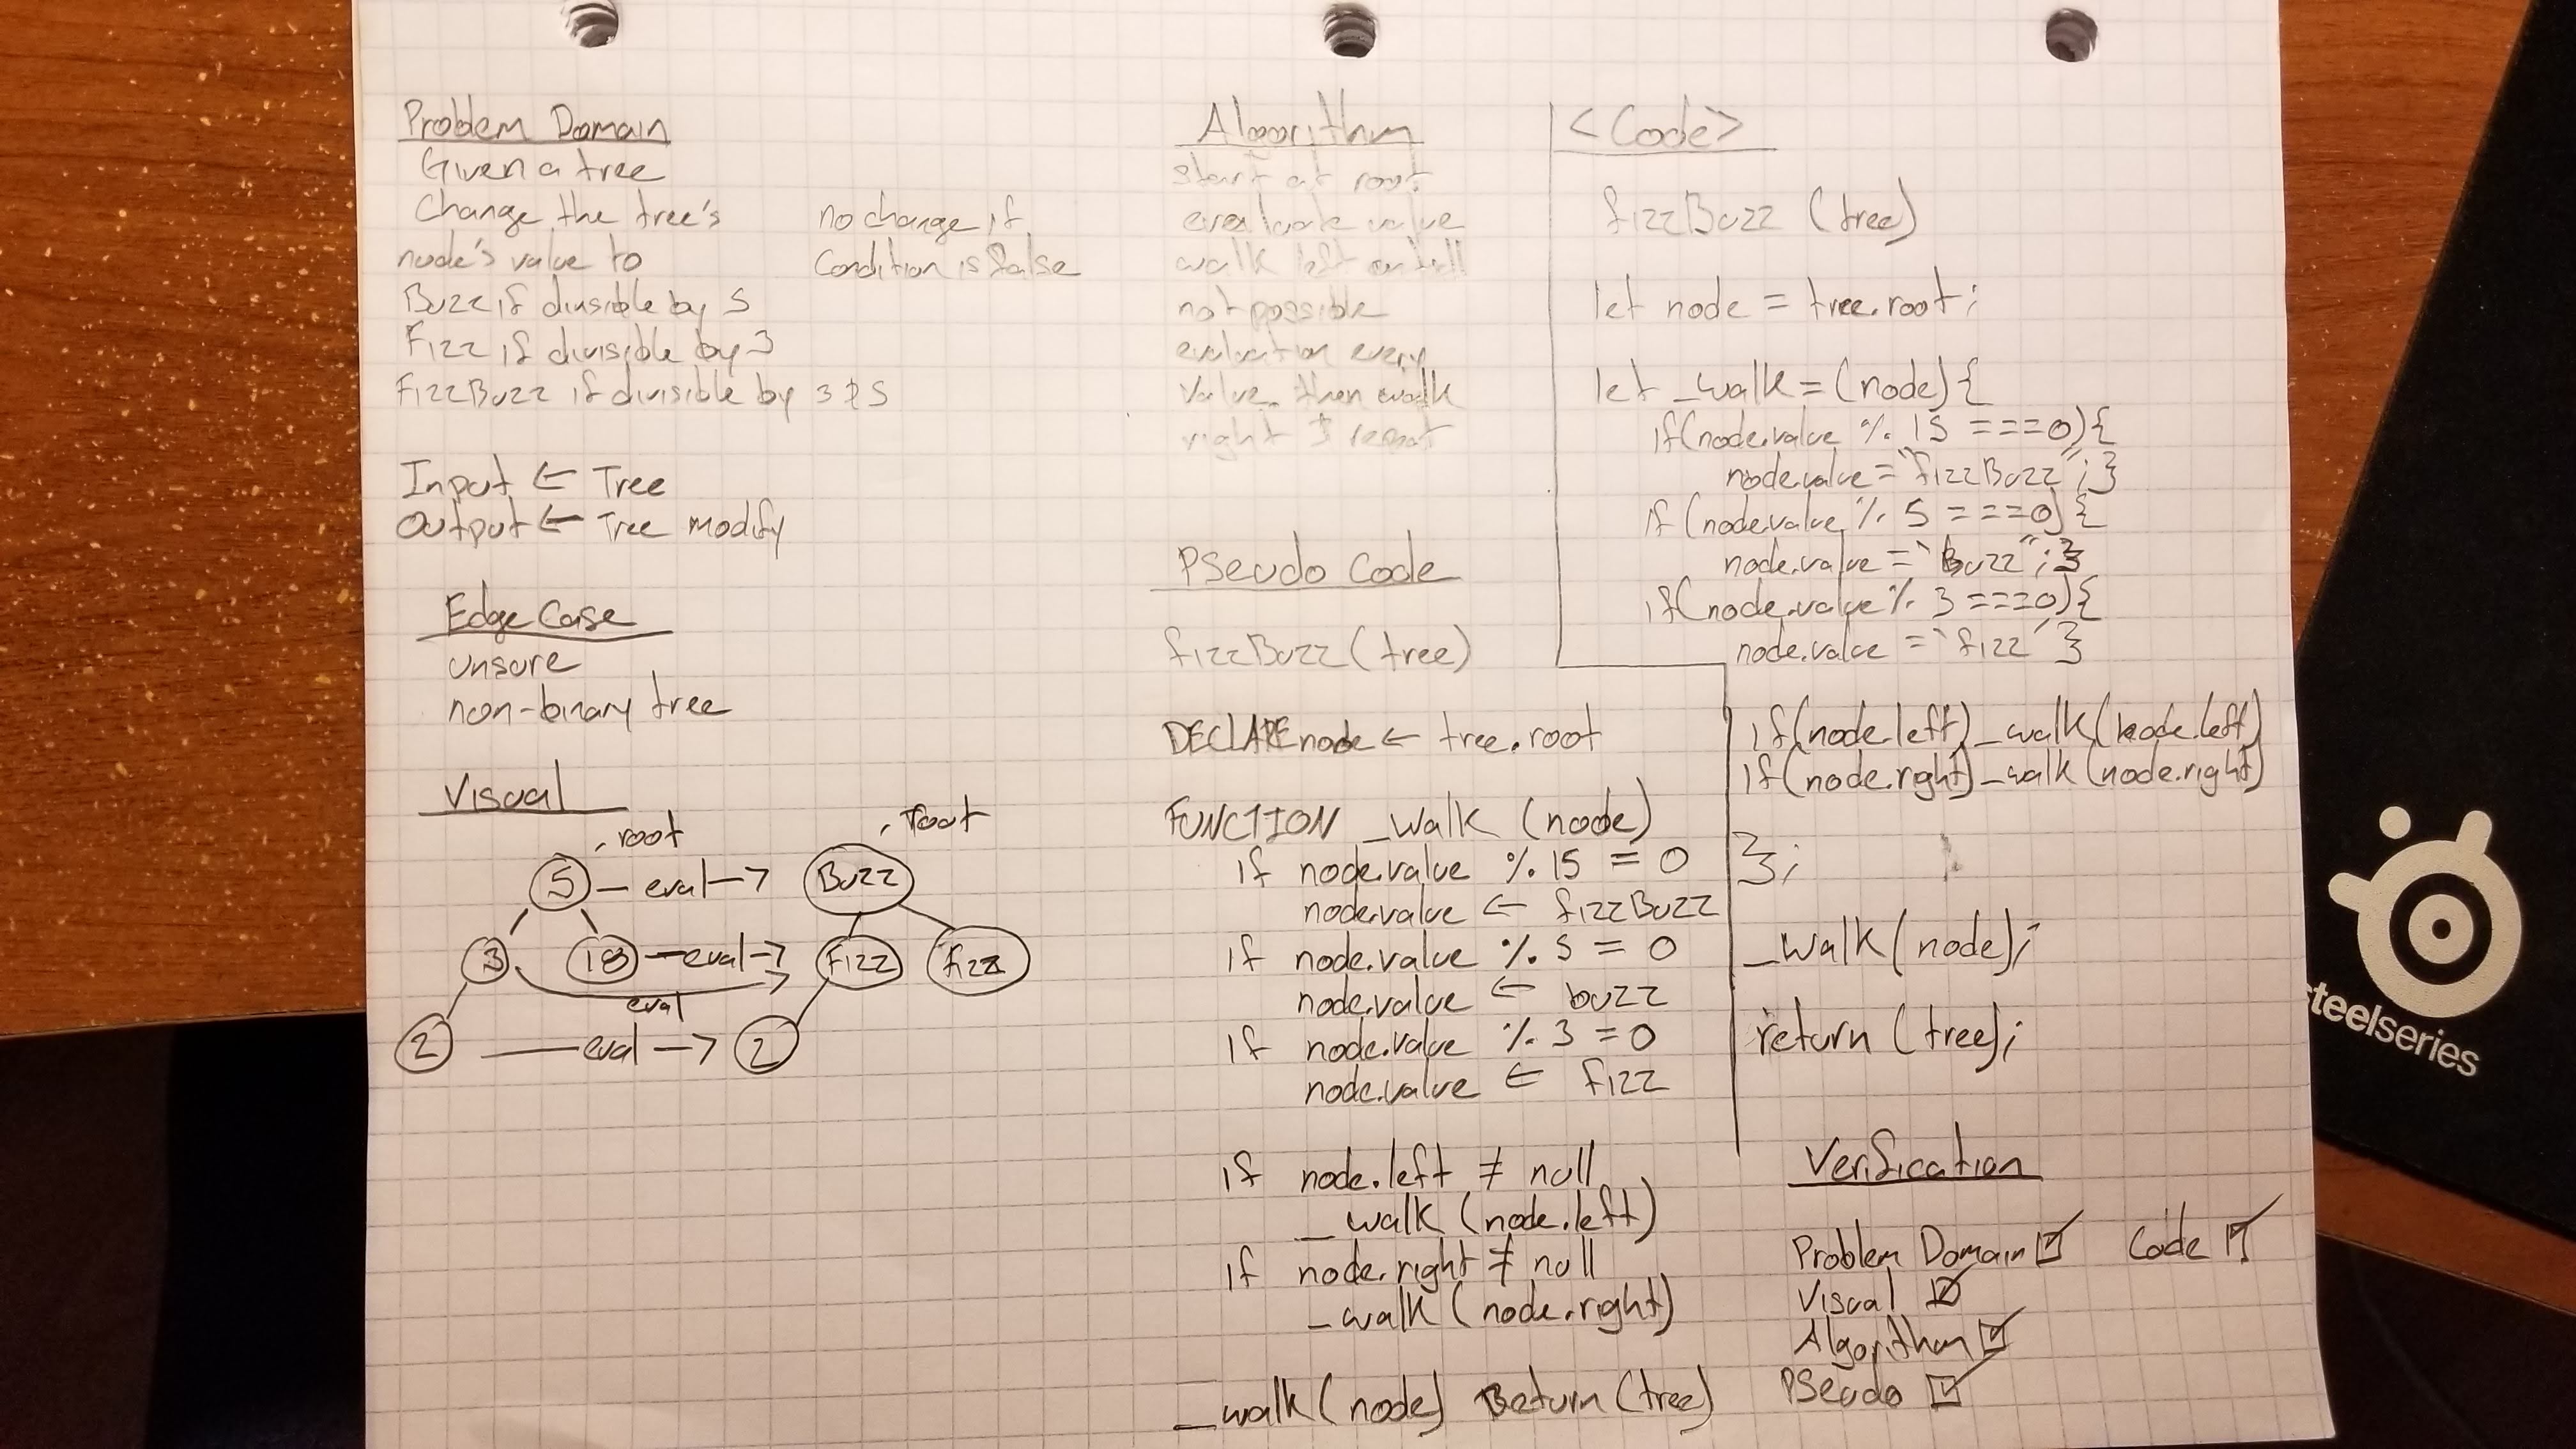 Problem Domain
Given a tree
Change the tree's
node's value to
Buzz if divisible by 5
Fizz if divisible by 3
FizzBuzz if divisible by 3 & 5
no change if
Condition is false
Input ← Tree
Output ← Tree modify
Edge Case
unsure
non-binary tree
Visual
.root
.root
5 — eval → Buzz
3 18 — eval → Fizz fizz
eval
2 — eval → 2
Algorithm
start at root
evaluate value
walk left untill
not possible
evaluation every
value. then walk
right & repeat
PSeudo Code
fizzBuzz (tree)
DECLARE node ← tree.root
FUNCTION _walk (node)
if node.value % 15 = 0
node.value ← fizzBuzz
if node.value % 5 = 0
node.value ← buzz
if node.value % 3 = 0
node.value ← fizz
if node.left ≠ null
_walk (node.left)
if node.right ≠ null
_walk (node.right)
_walk (node) Return (tree)
<Code>
fizzBuzz (tree)
let node = tree.root;
let _walk = (node){
if(node.value % 15 === 0){
node.value = "fizzBuzz"; }
if (node.value % 5 === 0) {
node.value = `buzz"; }
if(node.value % 3 === 0){
node.value = `fizz' }
if(node.left) _walk(node.left)
if(node.right) _walk(node.right)
};
_walk(node);
return (tree);
Verification
Problem Domain Code
Visual
Algorithm
PSeudo
steelseries